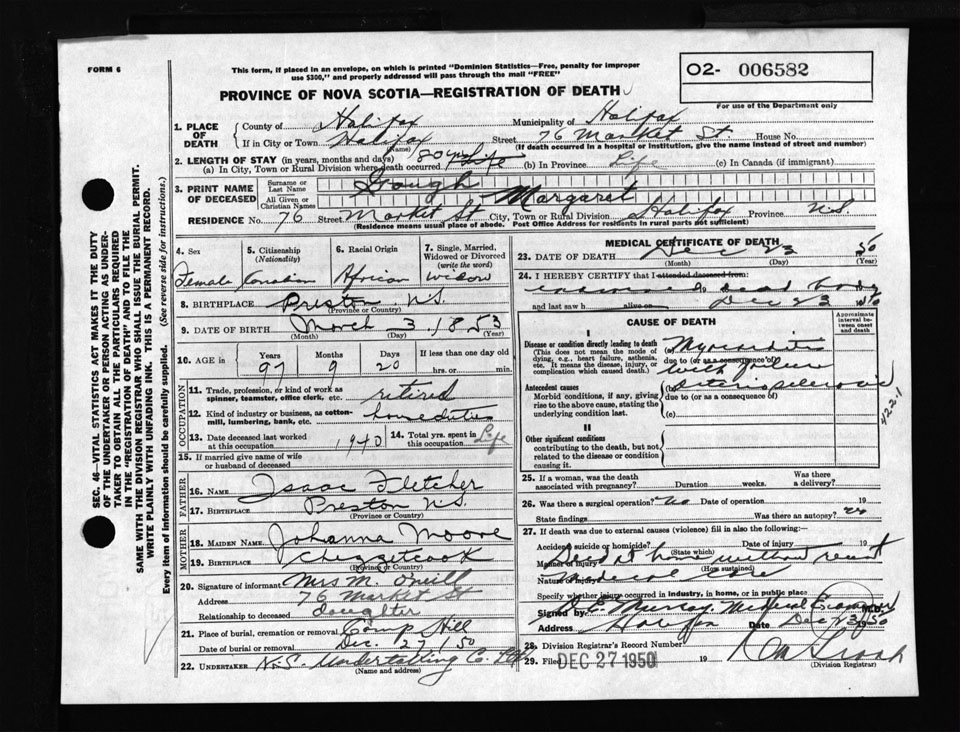 FORM 6
This form, if placed in an envelope, on which is printed "Dominion Statistics—Free, penalty for improper
use $300," and properly addressed will pass through the mail "FREE"
O2- 006582
For use of the Department only
PROVINCE OF NOVA SCOTIA—REGISTRATION OF DEATH
1. PLACE OF DEATH County of Halifax Municipality of Halifax
If in City or Town Halifax (Name) Street 76 Market St House No.
(If death occurred in a hospital or institution, give its name instead of street and number)
2. LENGTH OF STAY (in years, months and days)
(a) In City, Town or Rural Division where death occurred 80 yrs Life (b) In Province Life (c) In Canada (if immigrant)
3. PRINT NAME OF DECEASED Surname or Last Name Gough
All Given or Christian Names Margaret
RESIDENCE No. 76 Street Market St City, Town or Rural Division Halifax Province N.S.
(Residence means usual place of abode. Post Office Address for residents in rural parts not sufficient)
4. Sex Female
5. Citizenship (Nationality) Canadian
6. Racial Origin African
7. Single, Married, Widowed or Divorced (write the word) Widow
8. BIRTHPLACE Preston N.S.
(Province or Country)
9. DATE OF BIRTH March 3 1853
(Month) (Day) (Year)
10. AGE in Years 97 Months 9 Days 20 If less than one day old
hrs. or min.
OCCUPATION
11. Trade, profession, or kind of work as spinner, teamster, office clerk, etc. retired
12. Kind of industry or business, as cotton-mill, lumbering, bank, etc. home duties
13. Date deceased last worked at this occupation 1940 14. Total yrs. spent in this occupation Life
15. If married give name of wife or husband of deceased
FATHER
16. NAME Isaac Fletcher
17. BIRTHPLACE Preston N.S.
(Province or Country)
MOTHER
18. MAIDEN NAME Johanna Moore
19. BIRTHPLACE Chezzetcook
(Province or Country)
20. Signature of informant Mrs M. Oneill
Address 76 Market St
Relationship to deceased daughter
21. Place of burial, cremation or removal Camp Hill
Date of burial or removal Dec. 27 50
22. UNDERTAKER N.S. Undertaking Co. Ltd
(Name and address)
MEDICAL CERTIFICATE OF DEATH
23. DATE OF DEATH Dec 23 50
(Month) (Day) (Year)
24. I HEREBY CERTIFY that I attended deceased from:
dead body
and last saw h alive on Dec 23 1950
CAUSE OF DEATH
Approximate interval between onset and death
I
Disease or condition directly leading to death (a) Myocarditis
(This does not mean the mode of dying, e.g., heart failure, asthenia, etc. It means the disease, injury, or complication which caused death.)
due to (or as consequence of)
with failure
Antecedent causes (b) Arteriosclerosis
Morbid conditions, if any, giving rise to the above cause, stating the underlying condition last.
due to (or as a consequence of)
(c)
422.1
II
Other significant conditions contributing to the death, but not related to the disease or condition causing it.
25. If a woman, was the death associated with pregnancy? Duration weeks. Was there a delivery?
26. Was there a surgical operation? no Date of operation 19
State findings Was there an autopsy? no
27. If death was due to external causes (violence) fill in also the following:
Accident, suicide or homicide? (State which) Date of injury 19
Died at home without recent
(How sustained)
Nature of injury medical care
Specify whether injury occurred in industry, in home, or in public place
Signed by Murray Medical Examiner M.D.
Address Halifax Date Dec 23 1950
28. Division Registrar's Record Number
29. Filed DEC 27 1950 19
(Division Registrar)
SEC. 46—VITAL STATISTICS ACT MAKES IT THE DUTY
OF THE UNDERTAKER OR PERSON ACTING AS UNDER-
TAKER TO OBTAIN ALL THE PARTICULARS REQUIRED
IN THE "REGISTRATION OF DEATH" AND TO FILE THE
SAME WITH THE DIVISION REGISTRAR WHO SHALL ISSUE THE BURIAL PERMIT.
WRITE PLAINLY WITH UNFADING INK. THIS IS A PERMANENT RECORD.
Every item of Information should be carefully supplied. (See reverse side for instructions.)